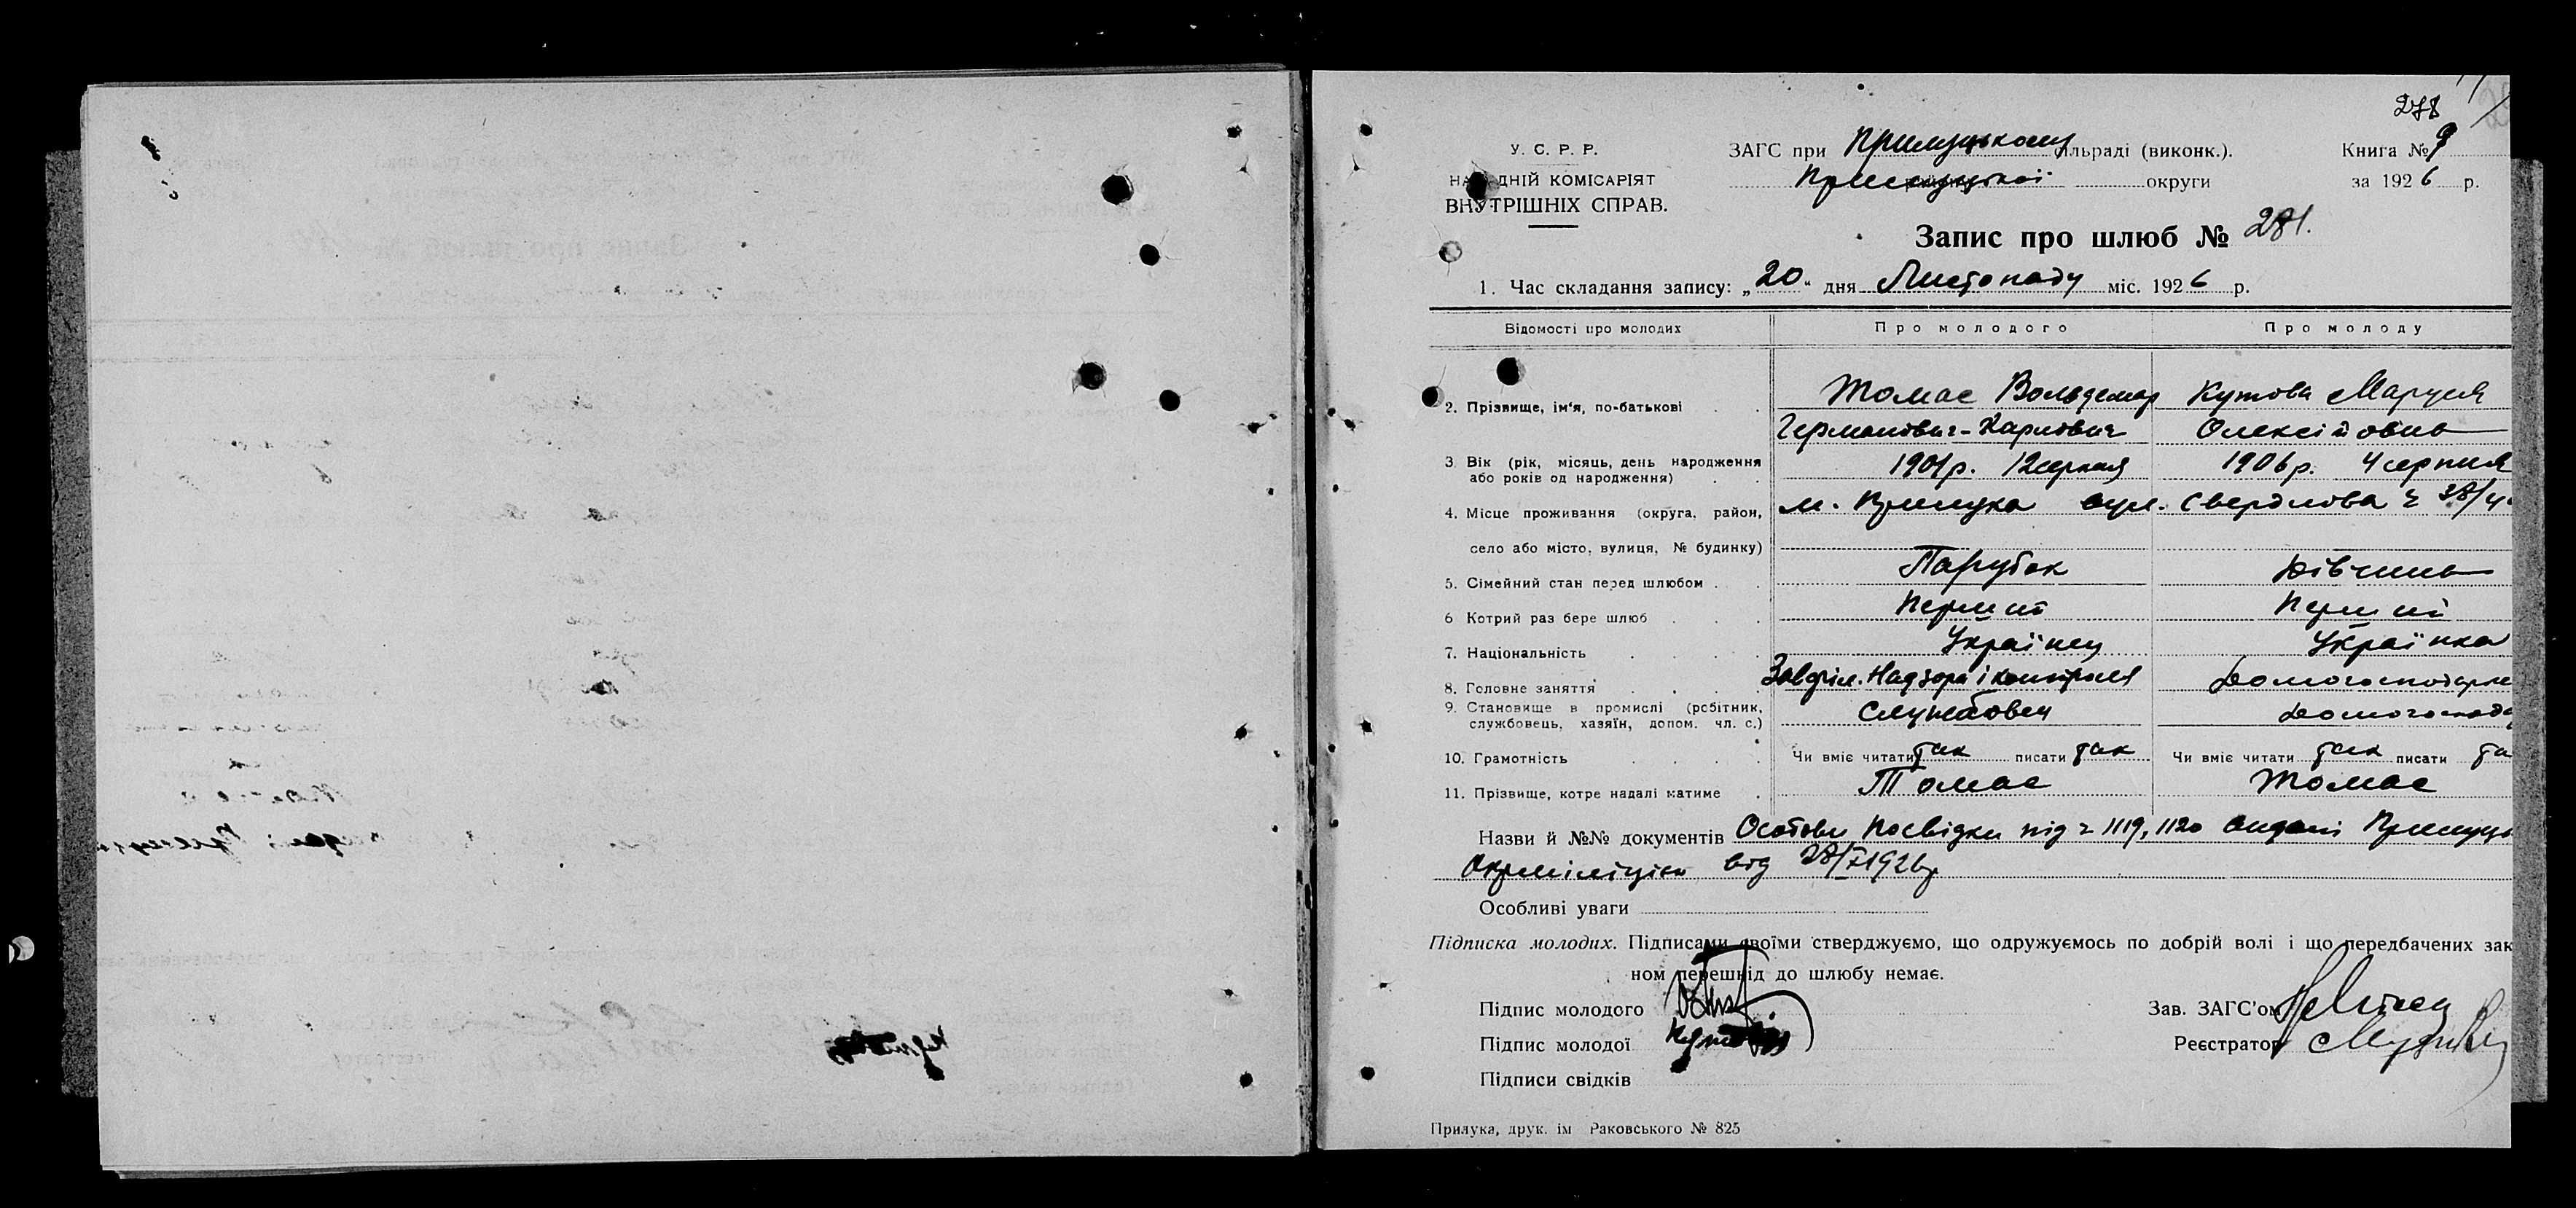 278
У. С. Р. Р.
НАРОДНІЙ КОМІСАРІЯТ
ВНУТРІШНІХ СПРАВ.
ЗАГС при Прилуцькому сільраді (виконк.).
Прилуцької округи
Книга № 9
за 1926 р.
Запис про шлюб № 281.
1. Час складання запису: „20“ дня Листопаду міс. 1926 р.
Відомості про молодих Про молодого Про молоду
2. Прізвище, ім'я, по-батькові . . Томас Вольдемар Кутова Маруся
Германович-Карлович Олексіївна
3. Вік (рік, місяць, день народження або років од народження) . . 1901р. 12 серпня 1906р. 4 серпня
4. Місце проживання (округа, район, м. Прилука вул. Свердлова ч 38/4
село або місто, вулиця, № будинку)
5. Сімейний стан перед шлюбом . . Парубок Дівчина
6 Котрий раз бере шлюб . . . Перший Перший
7. Національність . . . Українец Українка
8. Головне заняття . . . . Завділ. Надзора і контроля Домогосподарка
9. Становище в промислі (робітник, службовець, хазяїн, допом. чл. с.) Службовец Домогоспод
10. Грамотність . . . . Чи вміє читати так писати так Чи вміє читати так писати та
11. Прізвище, котре надалі матиме . Томас Томас
Назви й №№ документів Особові посвідки під ч 1119, 1120 видані Прилуць
Окрміліцією від 28/ 1926р
Особливі уваги
Підписка молодих. Підписами своїми стверджуємо, що одружуємось по добрій волі і що передбачених зак
ном перешкід до шлюбу немає.
Підпис молодого
Зав. ЗАГС'ом
Підпис молодої
Реєстратор
Підписи свідків
Прилука, друк. ім Раковського № 825